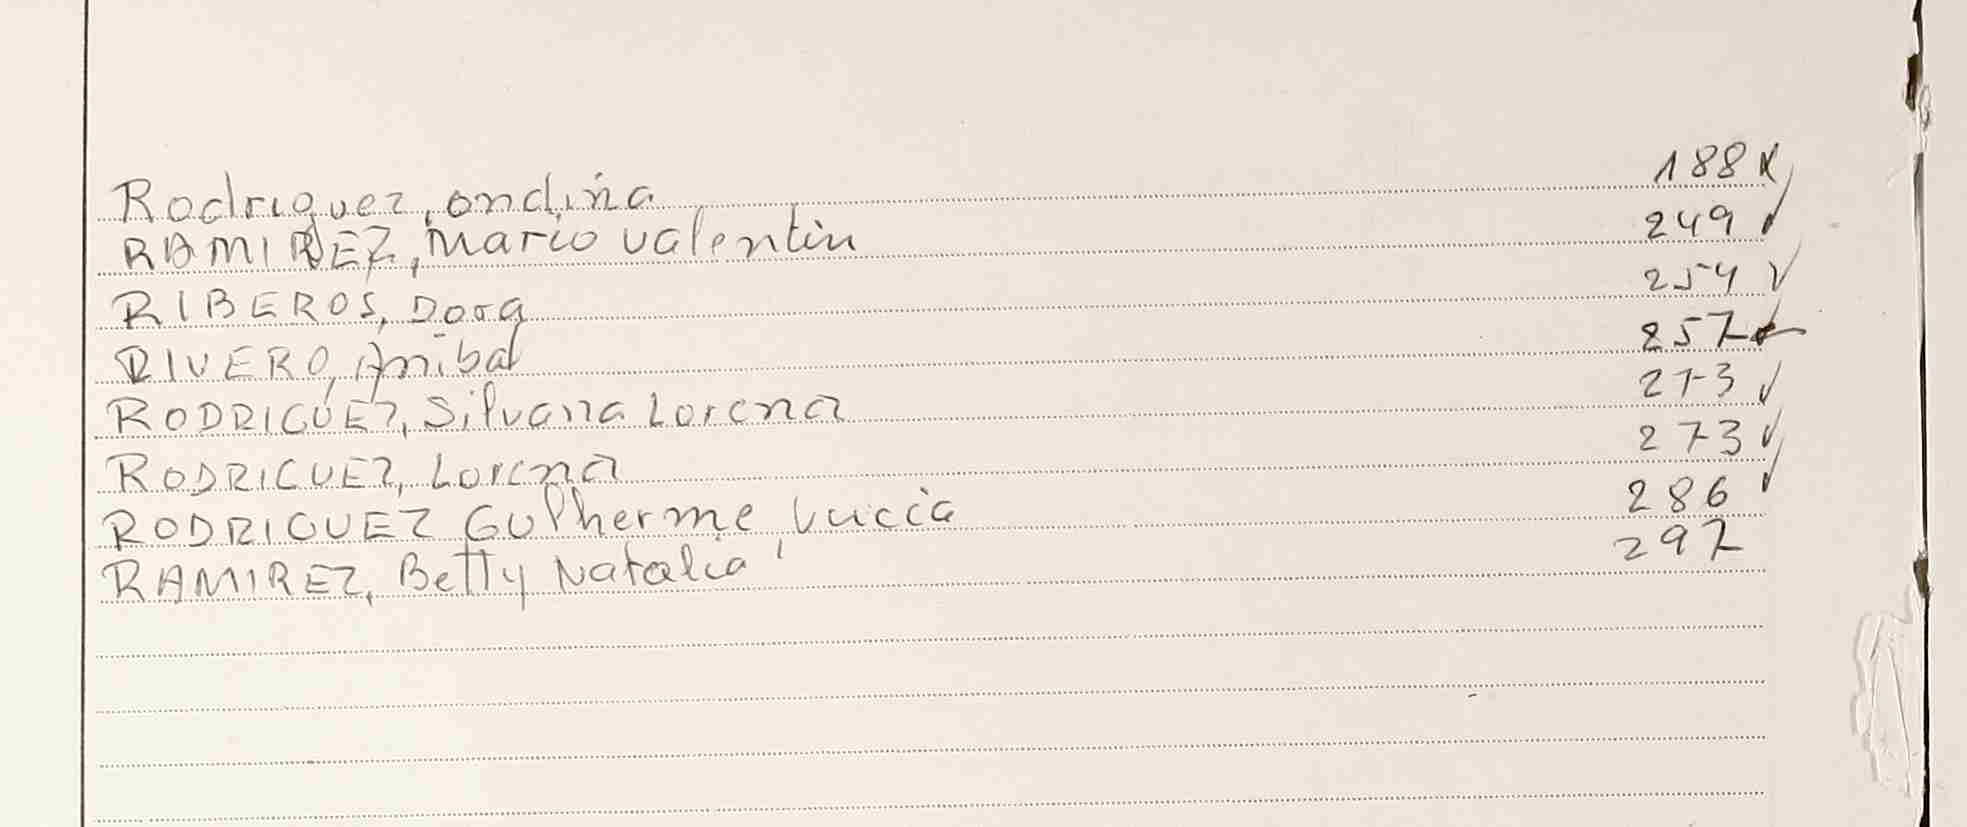 Rodriguez, ondina 188
RAMIREZ, Mario Valentin 249 ✓
RIBEROS, Dora 254 ✓
RIVERO, Anibal 257
RODRIGUEZ, Silvana Lorena 273 ✓
RODRIGUEZ, Lorena 273 ✓
RODRIGUEZ Gulherme, Lucia 286 ✓
RAMIREZ, Betty Natalia 297